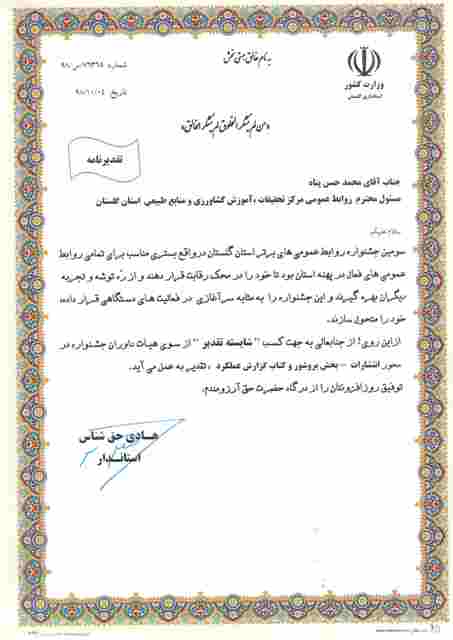 به نام خالق هستی بخش
شماره ۹۸/ص/۷۶۳۶۵
تاریخ: ۹۸/۱۰/۰۴
وزارت کشور
استانداری گلستان
«من لم یشکر المخلوق لم یشکر الخالق»
تقدیرنامه
جناب آقای محمد حسن پناه
مسئول محترم روابط عمومی مرکز تحقیقات ، آموزش کشاورزی و منابع طبیعی استان گلستان
سلام علیکم
سومین جشنواره روابط عمومی های برتر استان گلستان درواقع بستری مناسب برای تمامی روابط
عمومی های فعال در پهنه استان بود تا خود را در محک رقابت قرار دهند و از ره توشه و تجربه
دیگران بهره گیرند و این جشنواره را به مثابه سرآغازی در فعالیت های دستگاهی قرار داده،
خود را متحول سازند.
ازاین روی! از جنابعالی به جهت کسب " شایسته تقدیر " از سوی هیات داوران جشنواره در
محور انتشارات – بخش بروشور و کتاب گزارش عملکرد ، تقدیر به عمل می آید.
توفیق روزافزونتان را از درگاه حضرت حق آرزومندم.
هادی حق شناس
استاندار